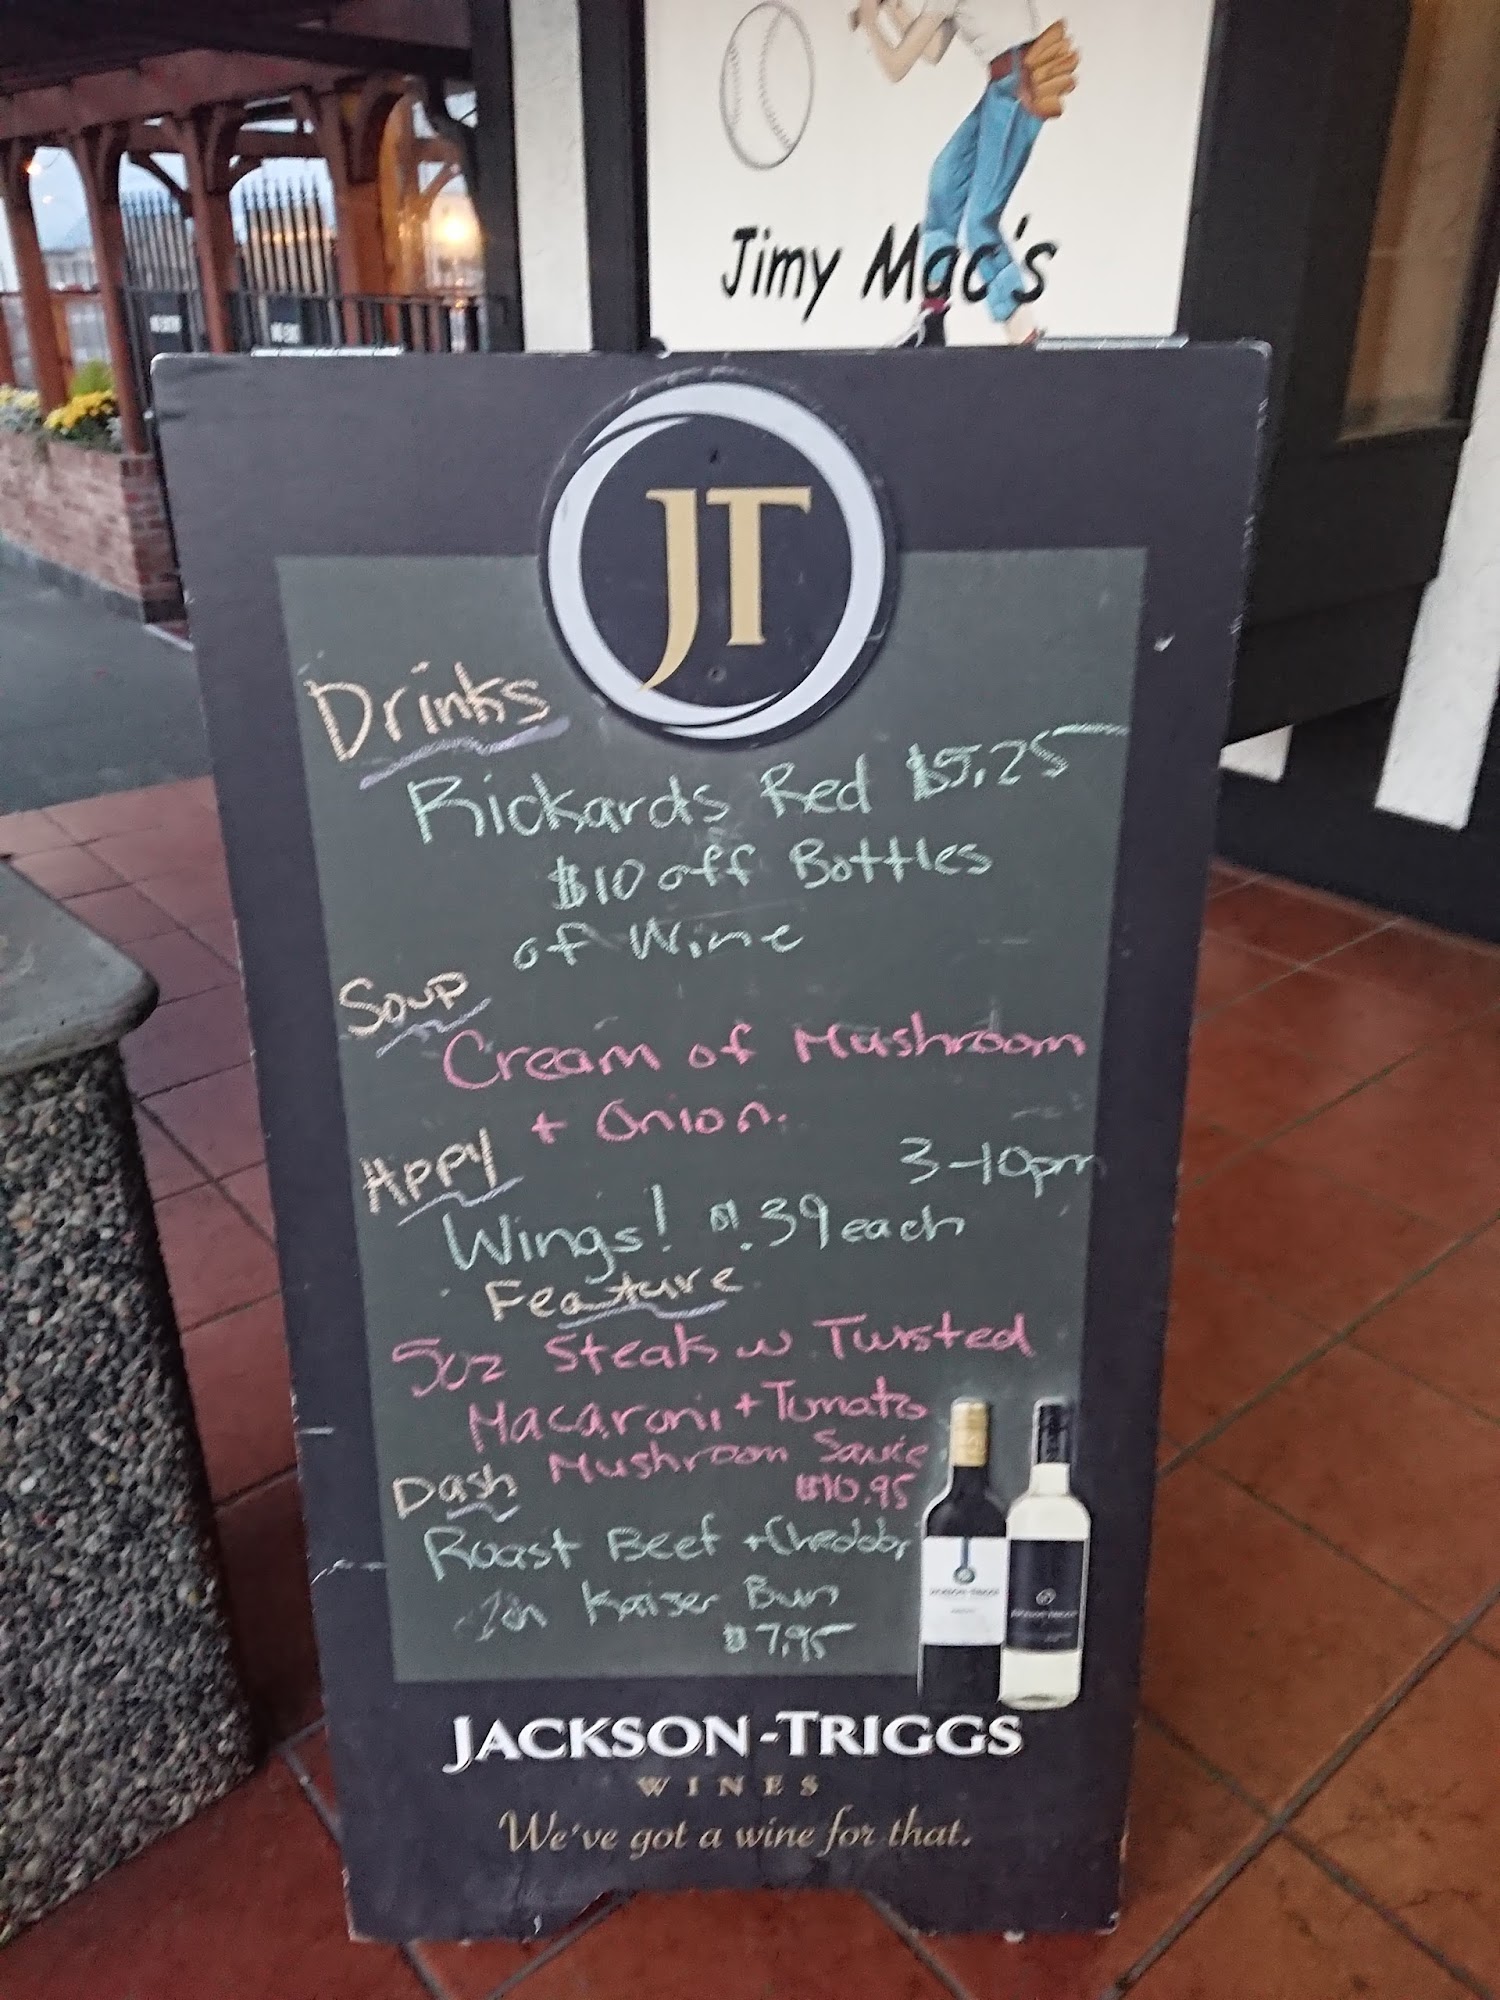 Jimy Mac's
JT
Drinks
Rickards Red $5.25
$10 off Bottles
of Wine
Soup
Cream of Mushroom
+ Onion.
Appy
3-10pm
Wings! .39 each
Feature
5oz Steak w Twisted
Macaroni + Tomato
Mushroom Sauce
$10.95
Dash
Roast Beef + Cheddar
on Kaiser Bun
$7.95
JACKSON-TRIGGS
WINES
We've got a wine for that.